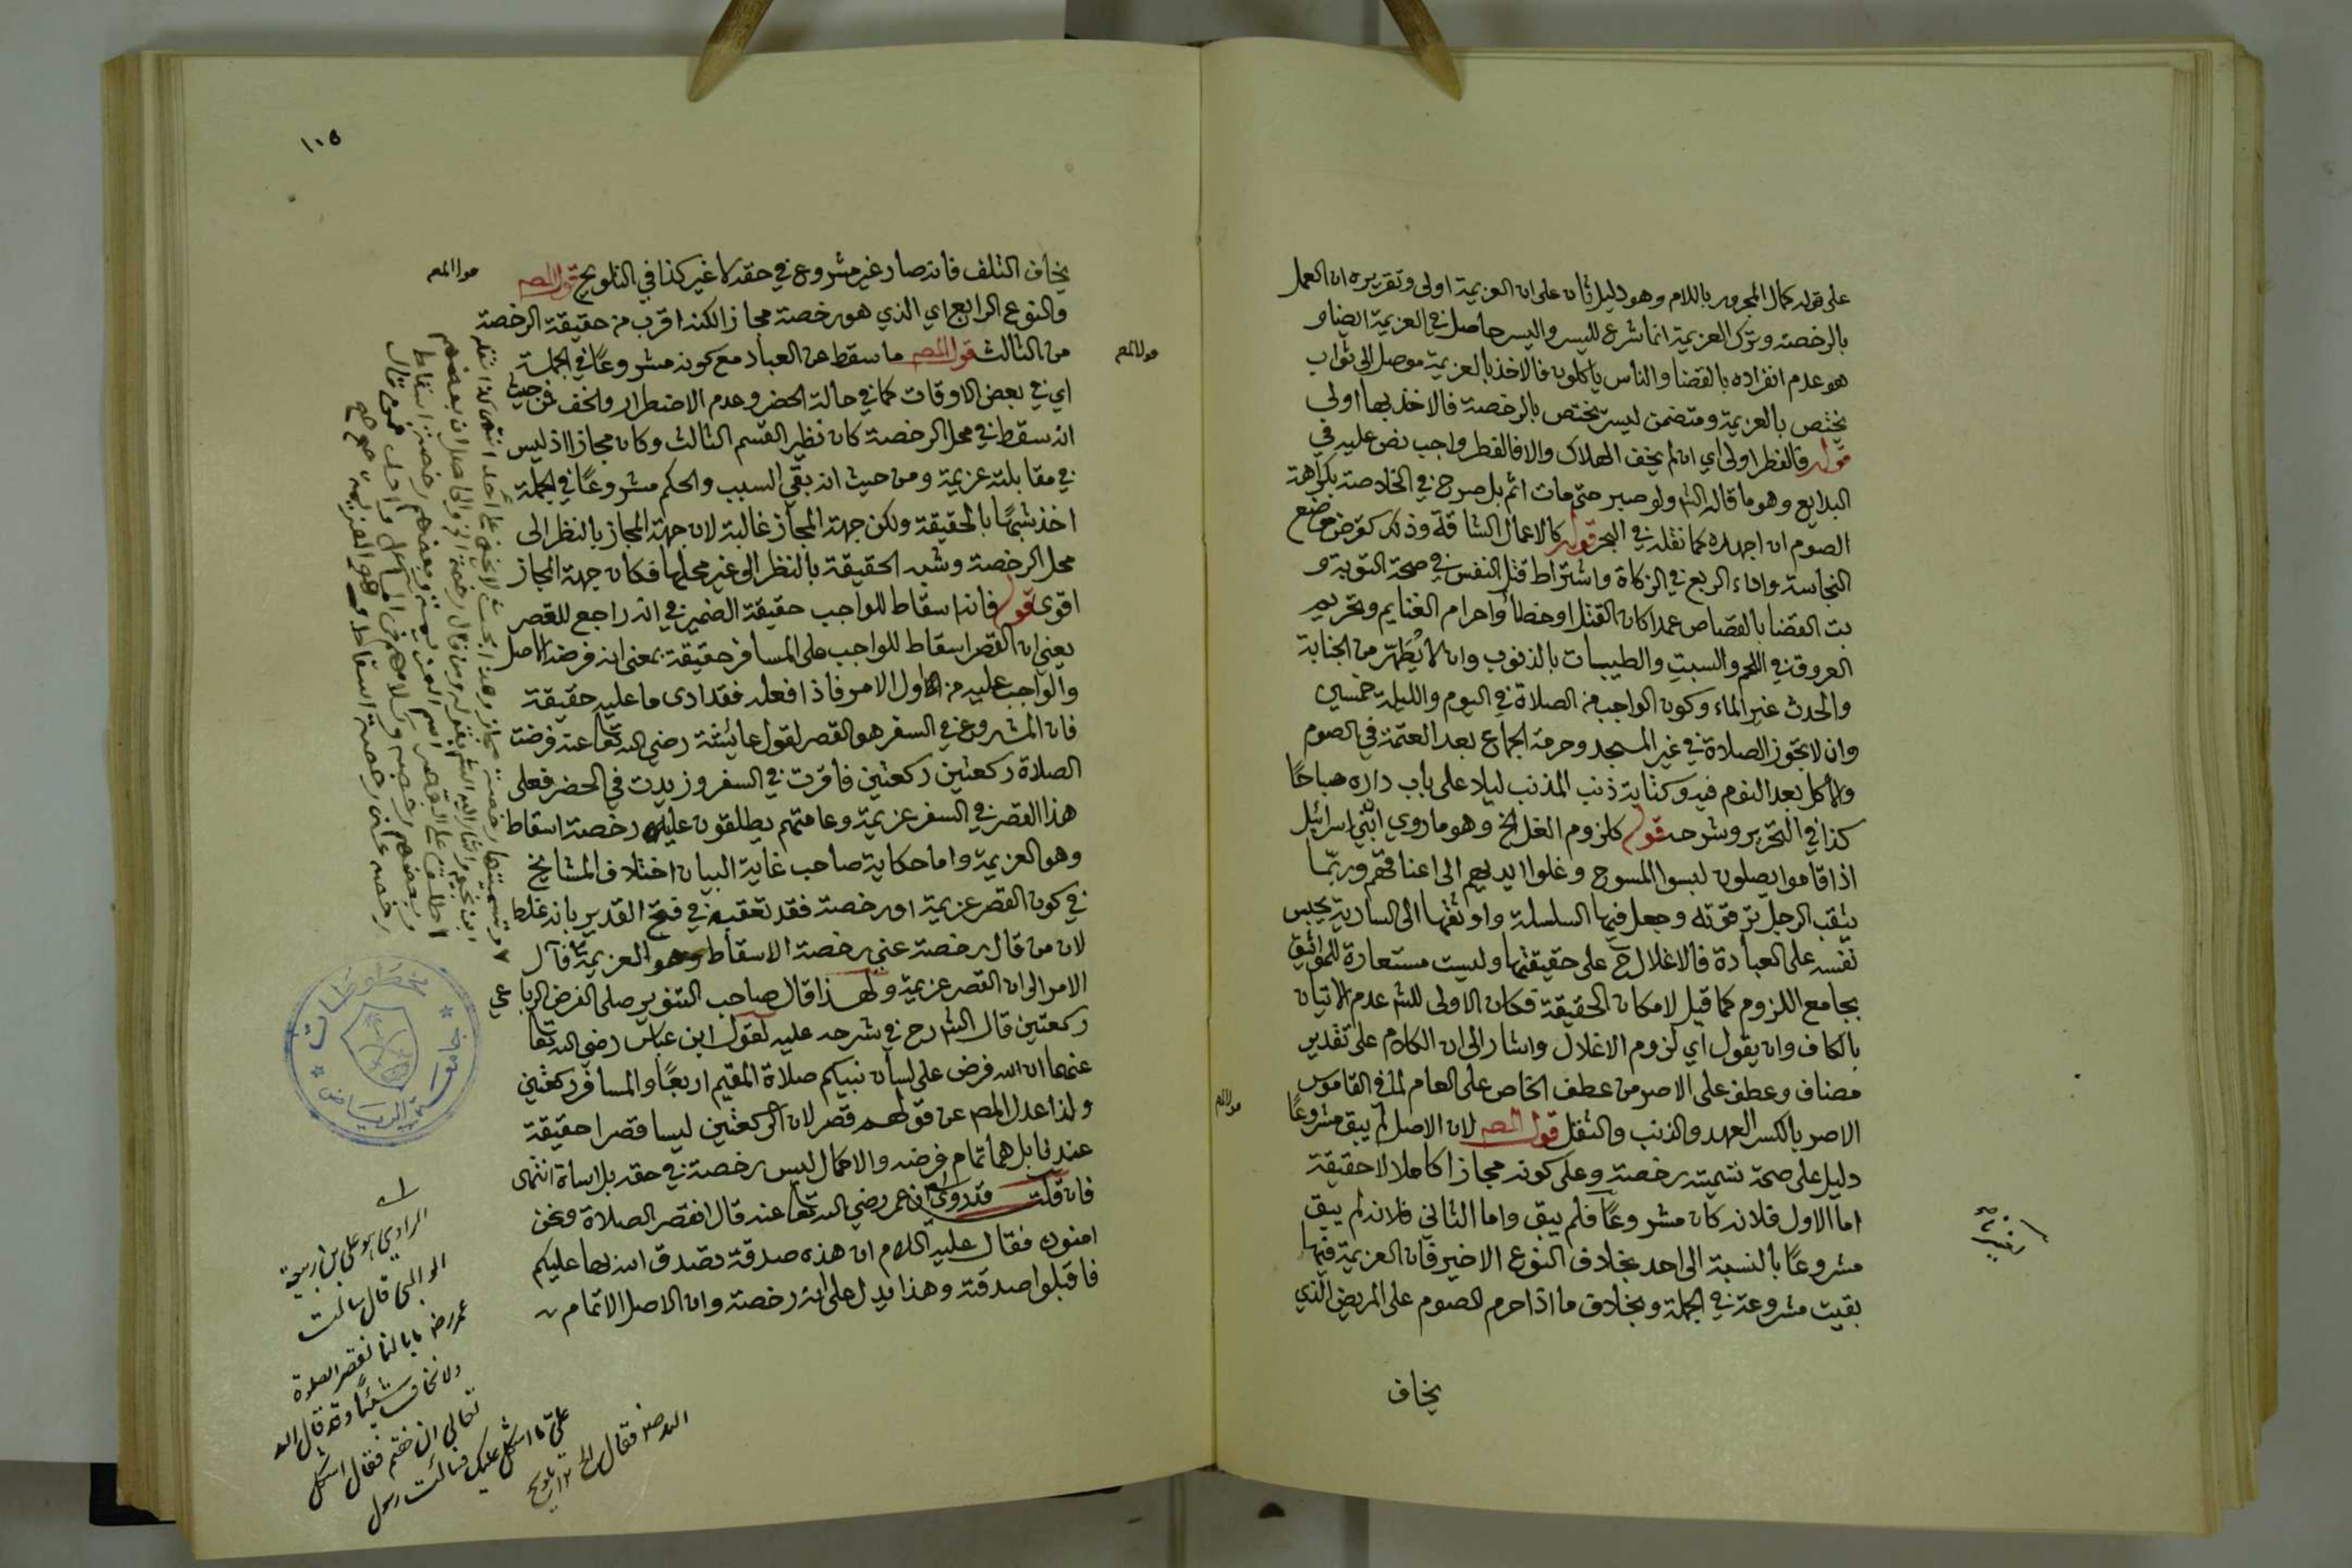 على قوله كمال المجرور باللام وهو دليل ثان على ان العزيمة اولى وتقريره ان العمل
بالرخصة وترك العزيمة انما شرع لليسر واليسر حاصل في العزيمة ايضا و
هو عدم انفراده بالقضا والناس ياكلون فالاخذ بالعزيمة موصل الى ثواب
يختص بالعزيمة ومتضمن ليسر يختص بالرخصة فالاخذ بها اولى
قوله فالفطر اولى اي ان لم يخف الهلاك والا فالفطر واجب نص عليه في
البدايع وهو ما قاله الشم ولو صبر حتى مات اثم بل صرح في الخلاصة بكراهة
الصوم ان اجهده كما نقله في البحر قوله كالاعمال الشاقة وذلك كقرض موضع
النجاسة واداء الربع في الزكاة واشتراط قتل النفس في صحة التوبة و
بت القضا بالقصاص عمدا كان القتل او خطأ واحرام الغنايم وتحريم
العروق في اللحم والسبت والطيبات بالذنوب وان لا يُطهّر من الجنابة
والحدث غير الماء وكون الواجب من الصلاة في اليوم والليلة خمسين
وان لا تجوز الصلاة في غير المسجد وحرمة الجماع بعد العتمة في الصوم
والاكل بعد النوم فيه وكتابة ذنب المذنب ليلا على باب داره صباحًا
كذا في التحرير وشرحه قوله كلزوم الغل الخ وهو ما روي ان بني اسرائيل
اذا قاموا يصلون لبسوا المسوح وغلوا ايديهم الى اعناقهم وربّما
يثقب الرجل ترقوته وجعل فيها السلسلة واوثقها الى السارية يحبس
نفسه على العبادة فالاغلال ح على حقيقتها وليست مستعارة للمواثيق
بجامع اللزوم كما قيل لامكان الحقيقة فكان الاولى للشم عدم الاتيان
بالكاف وان يقول اي لزوم الاغلال واشار الى ان الكلام على تقدير
مضاف وعطف على الاصر من عطف الخاص على العام لما في القاموس
الاصر بالكسر العهد والذنب والثقل قول المصم لان الاصل لم يبق مشروعًا
دليل على صحة تسميته رخصة وعلى كونه مجازا كاملا لا حقيقة
اما الاول فلانه كان مشروعًا فلم يبق واما الثاني فلانه لم يبق
مشروعًا بالنسبة الى احد بخلاف النوع الاخير فان العزيمة فيها
بقيت مشروعة في الجملة وبخلاف ما اذا حرم الصوم على المريض الذي
يخاف
١١٥
يخاف التلف فانه صار غير مشروع في حقه لا غير كذا في التلويح قول المصم
والنوع الرابع اي الذي هو رخصة مجازا لكنه اقرب من حقيقة الرخصة
من الثالث قول المصم ما سقط عن العباد مع كونه مشروعًا في الجملة
اي في بعض الاوقات كما في حالة الحضر وعدم الاضطرار والخف فمن حيث
انه سقط في محل الرخصة كان نظير القسم الثالث وكان مجازا اذ ليس
في مقابلته عزيمة ومن حيث انه بقي السبب والحكم مشروعًا في الجملة
اخذ شبهًا بالحقيقة ولكن جهة المجاز غالبة لان جهة المجاز بالنظر الى
محل الرخصة وشبه الحقيقة بالنظر الى غير محلها فكان جهة المجاز
اقوى قوله فانه اسقاط للواجب حقيقة الضمير في انه راجع للقصر
يعني ان القصر اسقاط للواجب على المسافر حقيقة بمعنى انه فرضه الاصل
والواجب عليه من اول الامر فاذا فعله فقد ادى ما عليه حقيقة
فان المشروع في السفر هو القصر لقول عائشة رضي الله تعا عنه فرضت
الصلاة ركعتين ركعتين فاقرت في السفر وزيدت في الحضر فعلى
هذا القصر في السفر عزيمة وعامتهم يطلقون عليه رخصة اسقاط
وهو العزيمة واما حكاية صاحب غاية البيان اختلاف المشايخ
في كون القصر عزيمة او رخصة فقد تعقبه في فتح القدير بانه غلط
لان من قال رخصة عنى رخصة الاسقاط وهو العزيمة فآل
الامر الى ان القصر عزيمة ولهذا قال صاحب التنوير صلى الفرض الرباعي
ركعتين قال الشم رح في شرحه عليه لقول ابن عباس رضي الله تعا
عنهما ان الله فرض على لسان نبيكم صلاة المقيم اربعًا والمسافر ركعتين
ولذا عدل المصم عن قولهم قصر لان الركعتين ليسا قصرا حقيقة
عندنا بل هما تمام فرضه والاكمال ليس رخصة في حقه بل اساة انتهى
فان قلت قد روى ان عمر رضي الله تعا عنه قال انقصر الصلاة ونحن
امنون فقال عليه السلام ان هذه صدقة تصدق الله بها عليكم
فاقبلوا صدقته وهذا يدل على انه رخصة وان الاصل الاتمام
الراوي هو علي بن ربيعة
الوالبي قال سالت
عمر رض ما بالنا نقصر الصلوة
ولا نخاف شيئًا وقد قال الله
تعالى ان خفتم فقال اشكل
علي ما اشكل عليك فسالت رسول
الله صلم فقال الخ تلويح
مخطوطات
جامعة الرياض